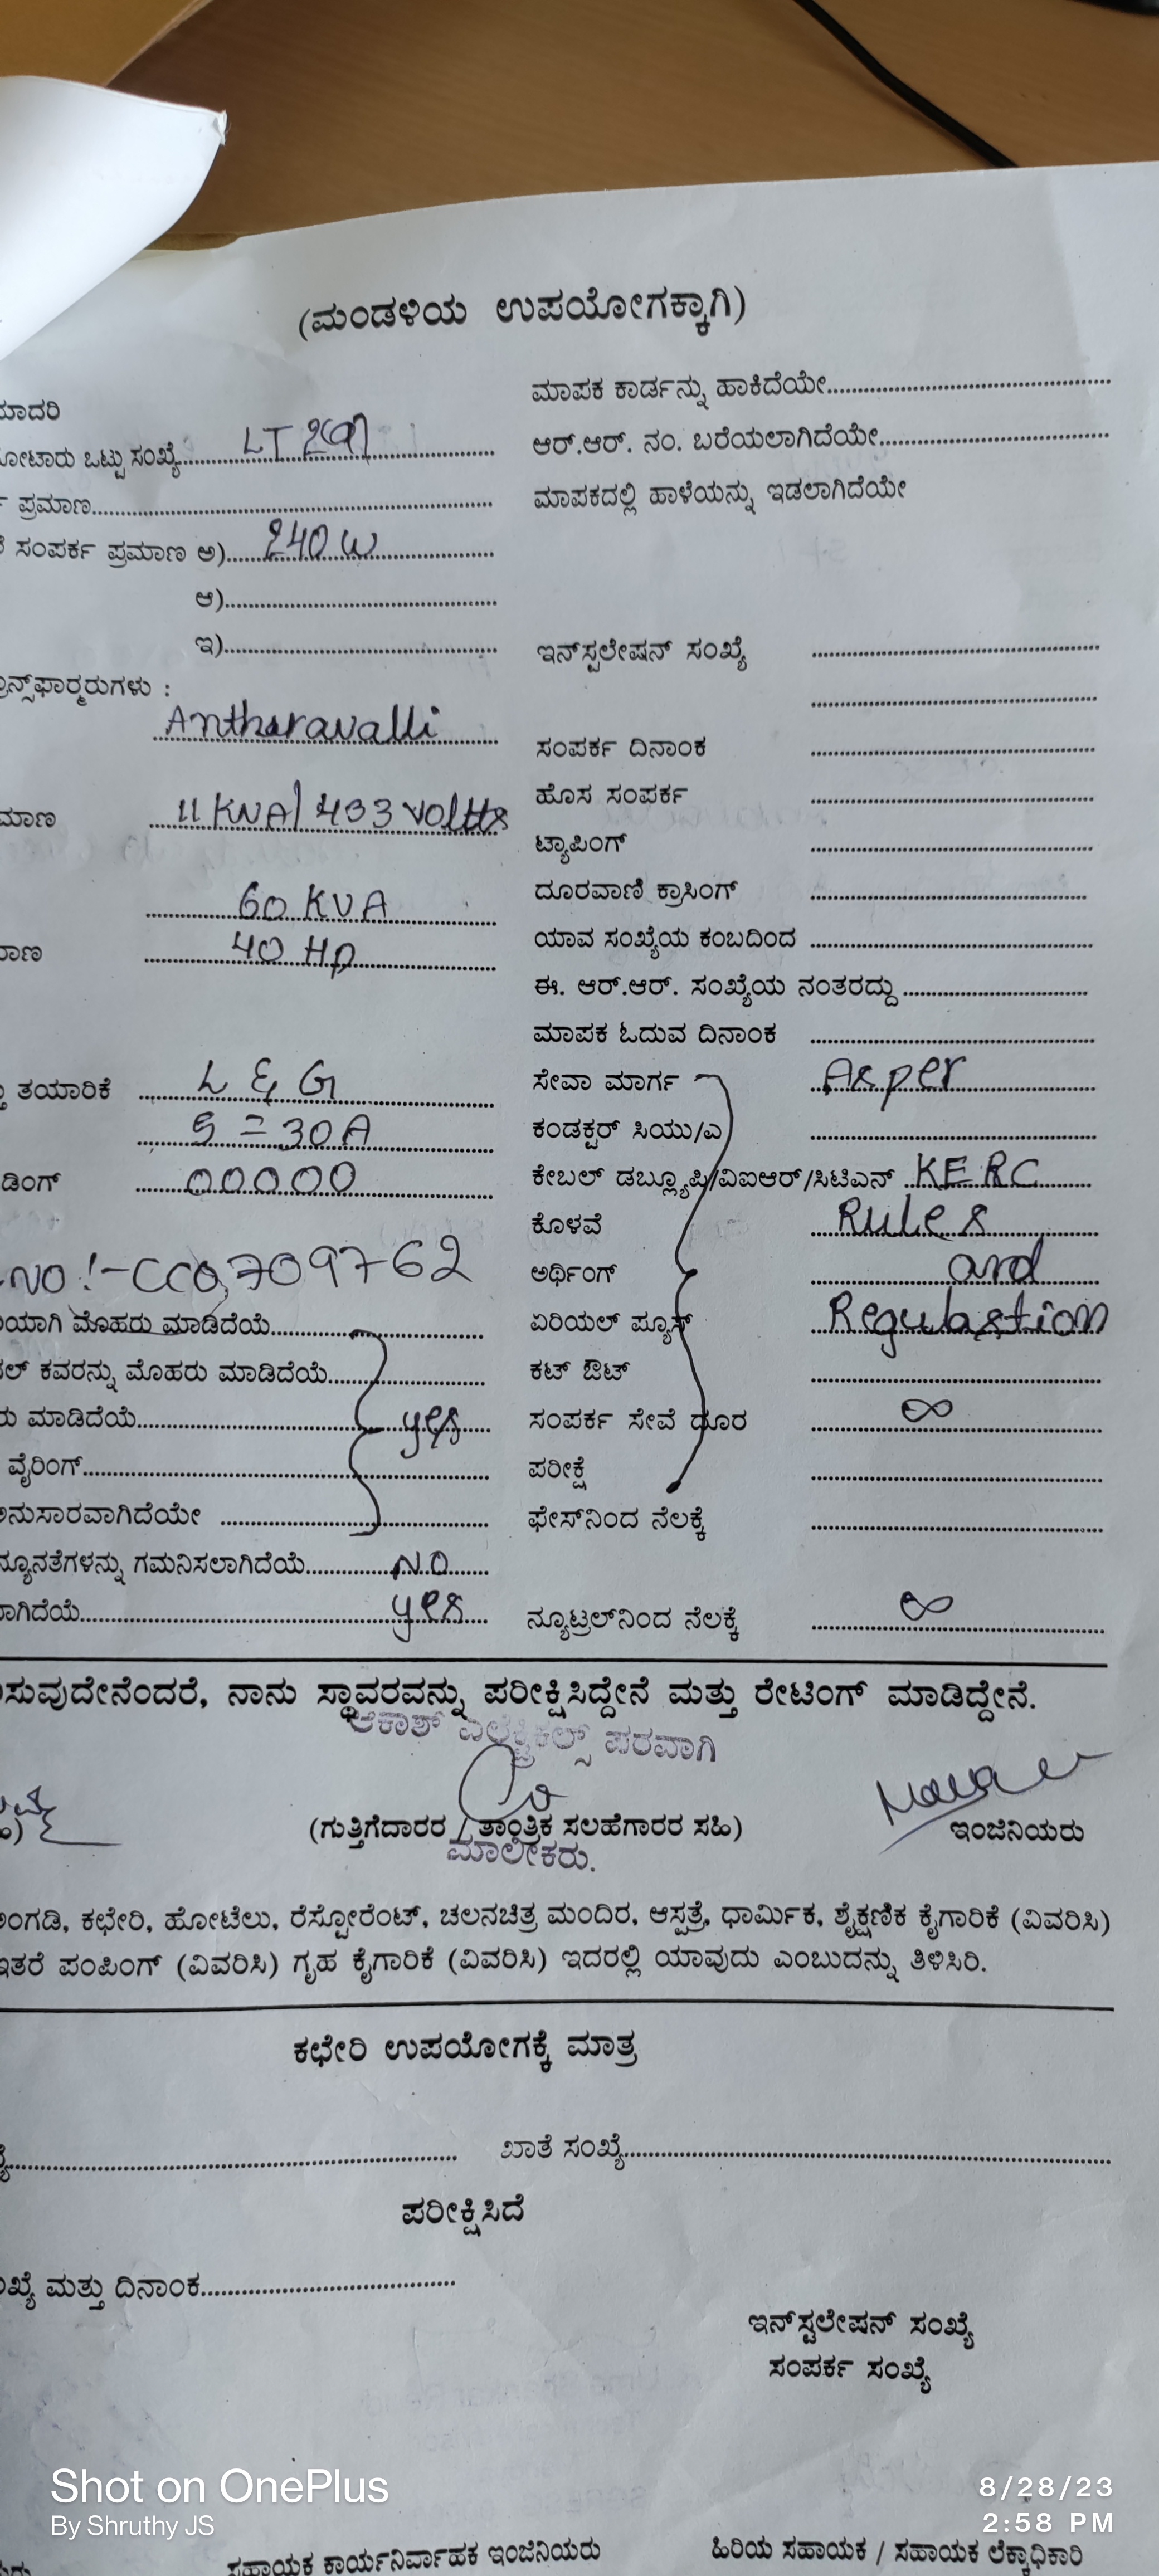 (ಮಂಡಳಿಯ ಉಪಯೋಗಕ್ಕಾಗಿ)
ಮಾದರಿ
ಮೋಟಾರು ಒಟ್ಟು ಸಂಖ್ಯೆ.......... LT 2(a)
ಪ್ರಮಾಣ..........
ಸಂಪರ್ಕ ಪ್ರಮಾಣ ಅ).......... 240 W
ಆ)..........
ಇ)..........
ನ್ಸ್‌ಫಾರ್ಮರುಗಳು :
Antharavalli
ಮಾಣ 11 KVA/ 433 volts
60 KVA
ಮಾಣ 40 Hp
ತಯಾರಿಕೆ L & G
5 = 30A
ಡಿಂಗ್ 00000
NO :- CC0,709762
ಯಾಗಿ ಮೊಹರು ಮಾಡಿದೆಯೆ..........
ಲ್ ಕವರನ್ನು ಮೊಹರು ಮಾಡಿದೆಯೆ..........
ರು ಮಾಡಿದೆಯೆ.......... yes
ವೈರಿಂಗ್..........
ಅನುಸಾರವಾಗಿದೆಯೇ ..........
ನ್ಯೂನತೆಗಳನ್ನು ಗಮನಿಸಲಾಗಿದೆಯೆ.......... NO
ಲಾಗಿದೆಯೆ.......... yes
ಮಾಪಕ ಕಾರ್ಡನ್ನು ಹಾಕಿದೆಯೇ..........
ಆರ್.ಆರ್. ನಂ. ಬರೆಯಲಾಗಿದೆಯೇ..........
ಮಾಪಕದಲ್ಲಿ ಹಾಳೆಯನ್ನು ಇಡಲಾಗಿದೆಯೇ
ಇನ್‌ಸ್ಟಲೇಷನ್ ಸಂಖ್ಯೆ ..........
ಸಂಪರ್ಕ ದಿನಾಂಕ ..........
ಹೊಸ ಸಂಪರ್ಕ ..........
ಟ್ಯಾಪಿಂಗ್ ..........
ದೂರವಾಣಿ ಕ್ರಾಸಿಂಗ್ ..........
ಯಾವ ಸಂಖ್ಯೆಯ ಕಂಬದಿಂದ ..........
ಈ. ಆರ್.ಆರ್. ಸಂಖ್ಯೆಯ ನಂತರದ್ದು ..........
ಮಾಪಕ ಓದುವ ದಿನಾಂಕ ..........
ಸೇವಾ ಮಾರ್ಗ Asper
ಕಂಡಕ್ಟರ್ ಸಿಯು/ಎ ..........
ಕೇಬಲ್ ಡಬ್ಲ್ಯೂಪಿ/ವಿಐಆರ್/ಸಿಟಿಎನ್ KERC
ಕೊಳವೆ Rules
ಅರ್ಥಿಂಗ್ and
ಏರಿಯಲ್ ಪ್ಯೂಸ್ Regulastion
ಕಟ್ ಔಟ್ ..........
ಸಂಪರ್ಕ ಸೇವೆ ದೂರ ∞
ಪರೀಕ್ಷೆ ..........
ಫೇಸ್‌ನಿಂದ ನೆಲಕ್ಕೆ ..........
ನ್ಯೂಟ್ರಲ್‌ನಿಂದ ನೆಲಕ್ಕೆ ∞
ಸುವುದೇನೆಂದರೆ, ನಾನು ಸ್ಥಾವರವನ್ನು ಪರೀಕ್ಷಿಸಿದ್ದೇನೆ ಮತ್ತು ರೇಟಿಂಗ್ ಮಾಡಿದ್ದೇನೆ.
ಆಕಾಶ್ ಎಲೆಕ್ಟ್ರಿಕಲ್ಸ್ ಪರವಾಗಿ
(ಗುತ್ತಿಗೆದಾರರ / ತಾಂತ್ರಿಕ ಸಲಹೆಗಾರರ ಸಹಿ) ಇಂಜಿನಿಯರು
ಮಾಲೀಕರು.
ಅಂಗಡಿ, ಕಛೇರಿ, ಹೋಟೆಲು, ರೆಸ್ಟೋರೆಂಟ್, ಚಲನಚಿತ್ರ ಮಂದಿರ, ಆಸ್ಪತ್ರೆ, ಧಾರ್ಮಿಕ, ಶೈಕ್ಷಣಿಕ ಕೈಗಾರಿಕೆ (ವಿವರಿಸಿ)
ಇತರೆ ಪಂಪಿಂಗ್ (ವಿವರಿಸಿ) ಗೃಹ ಕೈಗಾರಿಕೆ (ವಿವರಿಸಿ) ಇದರಲ್ಲಿ ಯಾವುದು ಎಂಬುದನ್ನು ತಿಳಿಸಿರಿ.
ಕಛೇರಿ ಉಪಯೋಗಕ್ಕೆ ಮಾತ್ರ
.......... ಖಾತೆ ಸಂಖ್ಯೆ..........
ಪರೀಕ್ಷಿಸಿದೆ
ಖ್ಯೆ ಮತ್ತು ದಿನಾಂಕ..........
ಇನ್‌ಸ್ಟಲೇಷನ್ ಸಂಖ್ಯೆ
ಸಂಪರ್ಕ ಸಂಖ್ಯೆ
Shot on OnePlus
By Shruthy JS
8/28/23
2:58 PM
ಸಹಾಯಕ ಕಾರ್ಯನಿರ್ವಾಹಕ ಇಂಜಿನಿಯರು ಹಿರಿಯ ಸಹಾಯಕ / ಸಹಾಯಕ ಲೆಕ್ಕಾಧಿಕಾರಿ